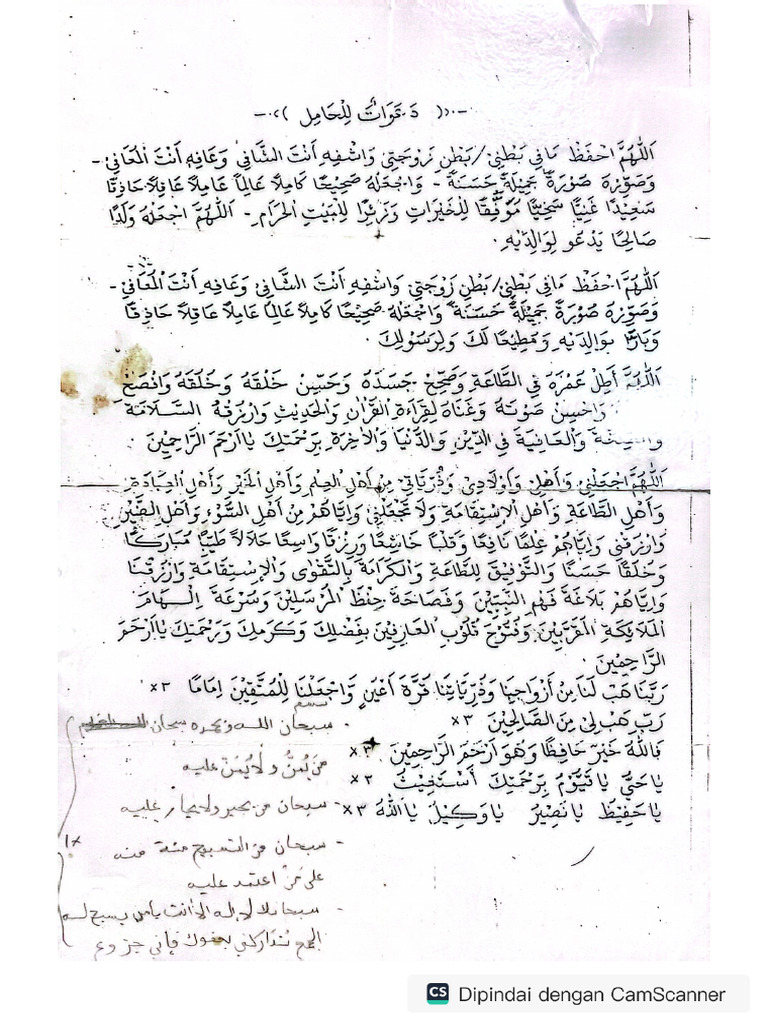 -‥(( دَعَوَاتٌ لِلْحَامِلِ ))‥-
اَللّٰهُمَّ احْفَظْ مَافِي بَطْنِيْ/بَطْنِ زَوْجَتِيْ وَاشْفِهِ أَنْتَ الشَّافِيْ وَعَافِهِ أَنْتَ الْمُعَافِيْ -
وَصَوِّرْهُ صُوْرَةً جَمِيْلَةً حَسَنَةً - وَاجْعَلْهُ صَحِيْحًا كَامِلًا عَالِمًا عَامِلًا عَاقِلًا حَاذِقًا
سَعِيْدًا غَنِيًّا سَخِيًّا مُوَفَّقًا لِلْخَيْرَاتِ وَزَئِرًا لِلْبَيْتِ الْحَرَامِ - اَللّٰهُمَّ اجْعَلْهُ وَلَدًا
صَالِحًا يَدْعُو لِوَالِدَيْهِ .
اَللّٰهُمَّ احْفَظْ مَافِي بَطْنِيْ/بَطْنِ زَوْجَتِيْ وَاشْفِهِ أَنْتَ الشَّافِيْ وَعَافِهِ أَنْتَ الْمُعَافِيْ -
وَصَوِّرْهُ صُوْرَةً جَمِيْلَةً حَسَنَةً وَاجْعَلْهُ صَحِيْحًا كَامِلًا عَالِمًا عَامِلًا عَاقِلًا حَاذِقًا
وَبَارًّا بِوَالِدَيْهِ وَمُطِيْعًا لَكَ وَلِرَسُوْلِكَ .
اَللّٰهُمَّ أَطِلْ عُمْرَهُ فِي الطَّاعَةِ وَصَحِّحْ جَسَدَهُ وَحَسِّنْ خَلْقَهُ وَخُلُقَهُ وَافْصَحْ
وَاحْسِنْ صَوْتَهُ وَغَنَاهُ لِقِرَاءَةِ الْقُرْاٰنِ وَالْحَدِيْثِ وَارْزُقْهُ السَّلَامَةَ
وَالْعَافِيَةَ فِي الدِّيْنِ وَالدُّنْيَا وَالْاٰخِرَةِ بِرَحْمَتِكَ يَاأَرْحَمَ الرَّاحِمِيْنَ .
اَللّٰهُمَّ اجْعَلْنِيْ وَأَهْلِيْ وَأَوْلَادِيْ وَذُرِّيَّاتِيْ مِنْ أَهْلِ الْعِلْمِ وَأَهْلِ الْخَيْرِ وَأَهْلِ الْعِبَادَةِ
وَأَهْلِ الطَّاعَةِ وَأَهْلِ الْإِسْتِقَامَةِ وَلَا تَجْعَلْنِيْ وَإِيَّاهُمْ مِنْ أَهْلِ السُّوْءِ وَأَهْلِ
وَارْزُقْنِيْ وَإِيَّاهُمْ عِلْمًا نَافِعًا وَقَلْبًا خَاشِعًا وَرِزْقًا وَاسِعًا حَلَالًا طَيِّبًا مُبَارَكًا
وَخُلُقًا حَسَنًا وَالتَّوْفِيْقَ لِلطَّاعَةِ وَالْكَرَامَةَ بِالتَّقْوٰى وَالْإِسْتِقَامَةِ وَارْزُقْنَا
وَإِيَّاهُمْ بَلَاغَةَ فَهْمِ النَّبِيِّيْنَ وَفَصَاحَةَ حِفْظِ الْمُرْسَلِيْنَ وَسُرْعَةَ إِلْهَامِ
الْمَلَائِكَةِ الْمُقَرَّبِيْنَ وَفُتُوْحَ قُلُوْبِ الْعَارِفِيْنَ بِفَضْلِكَ وَكَرَمِكَ وَبِرَحْمَتِكَ يَاأَرْحَمَ
الرَّاحِمِيْنَ .
رَبَّنَا هَبْ لَنَا مِنْ أَزْوَاجِنَا وَذُرِّيَّاتِنَا قُرَّةَ أَعْيُنٍ وَاجْعَلْنَا لِلْمُتَّقِيْنَ إِمَامًا ٣×
رَبِّ هَبْ لِيْ مِنَ الصَّالِحِيْنَ ٣×
فَاللهُ خَيْرٌ حَافِظًا وَهُوَ أَرْحَمُ الرَّاحِمِيْنَ ٣×
يَاحَيُّ يَاقَيُّوْمُ بِرَحْمَتِكَ أَسْتَغِيْثُ ٣×
يَاحَفِيْظُ يَانَصِيْرُ يَاوَكِيْلُ يَااَللهُ ٣×
- سبحان الله وبحمده سبحان
مَنْ يَمُنُّ وَلَا يُمَنُّ عليه
- سبحان من يجير ولا يجار عليه
- سبحان من التسبيح منة منه
على مَنْ اعتمد عليه
- سبحانك لا إله إلا أنت يامن يسبح له
الجميع تداركني بعفوك فإني جزوع
×١٠
CS Dipindai dengan CamScanner